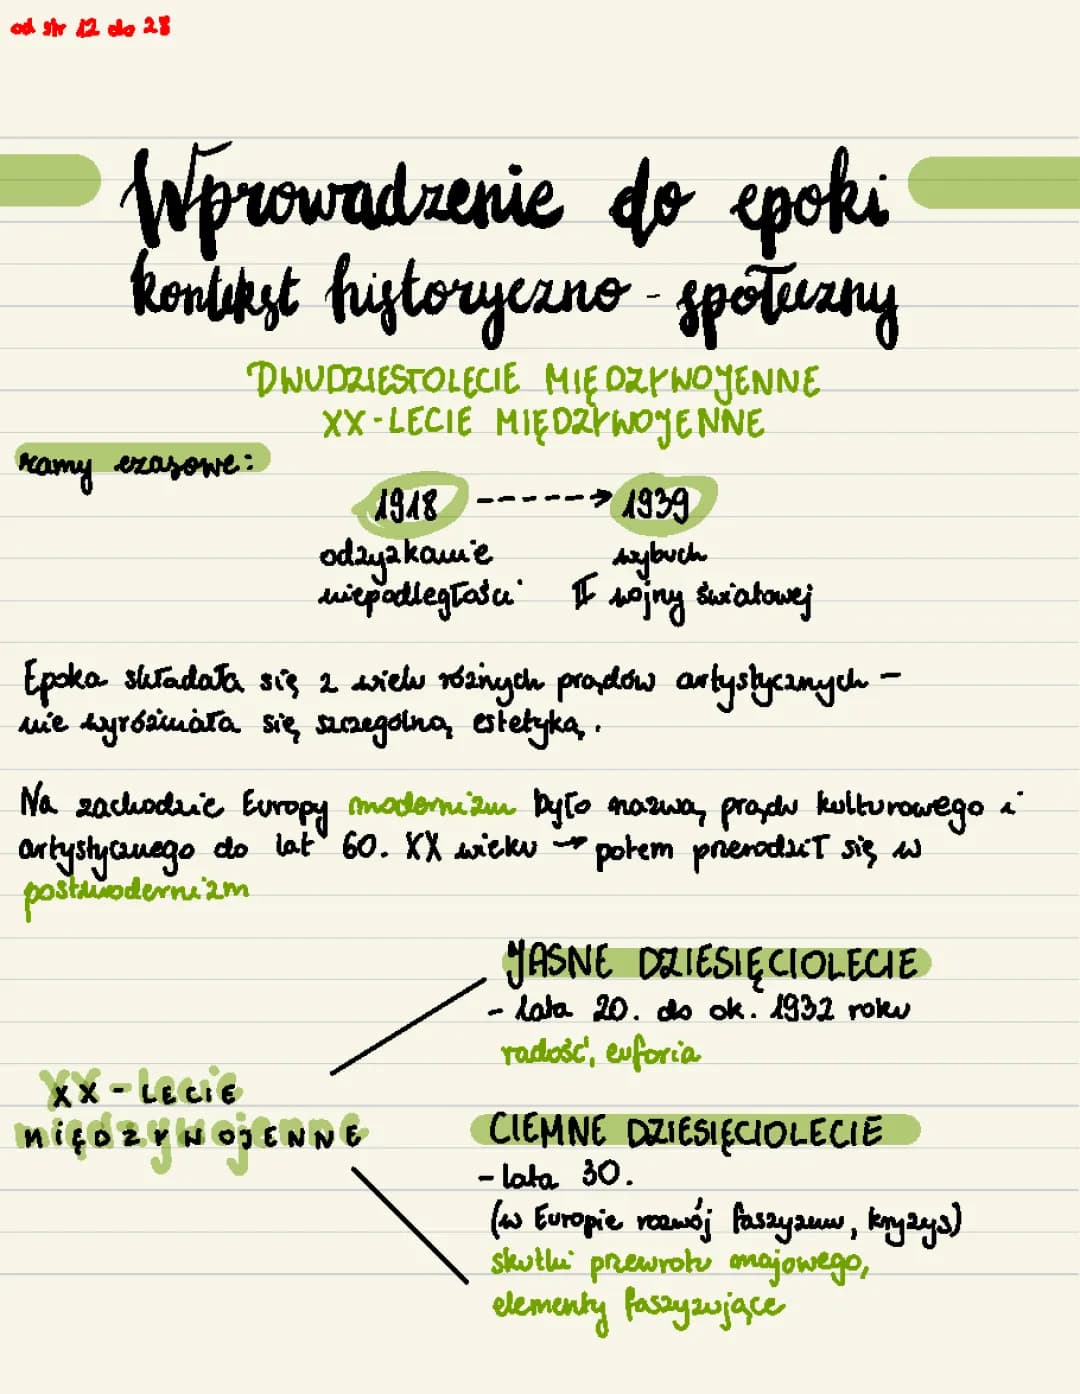 od str 12 do 28
Wprowadzenie do epoki
kontekst historyczno - społeczny
DWUDZIESTOLECIE MIĘDZYWOJENNE
XX-LECIE MIĘDZYWOJENNE
ramy czasowe:
1918 ------> 1939
odzyskanie wybuch
niepodległości II wojny światowej
Epoka składała się z wielu różnych prądów artystycznych -
nie wyróżniała się szczególną estetyką.
Na zachodzie Europy modernizm było nazwą prądu kulturowego i
artystycznego do lat 60. XX wieku → potem przerodził się w
postmodernizm
JASNE DZIESIĘCIOLECIE
- lata 20. do ok. 1932 roku
radość, euforia
XX-LECIE
MIĘDZYWOJENNE
CIEMNE DZIESIĘCIOLECIE
- lata 30.
(w Europie rozwój faszyzmu, kryzys)
skutki przewrotu majowego,
elementy faszyzujące